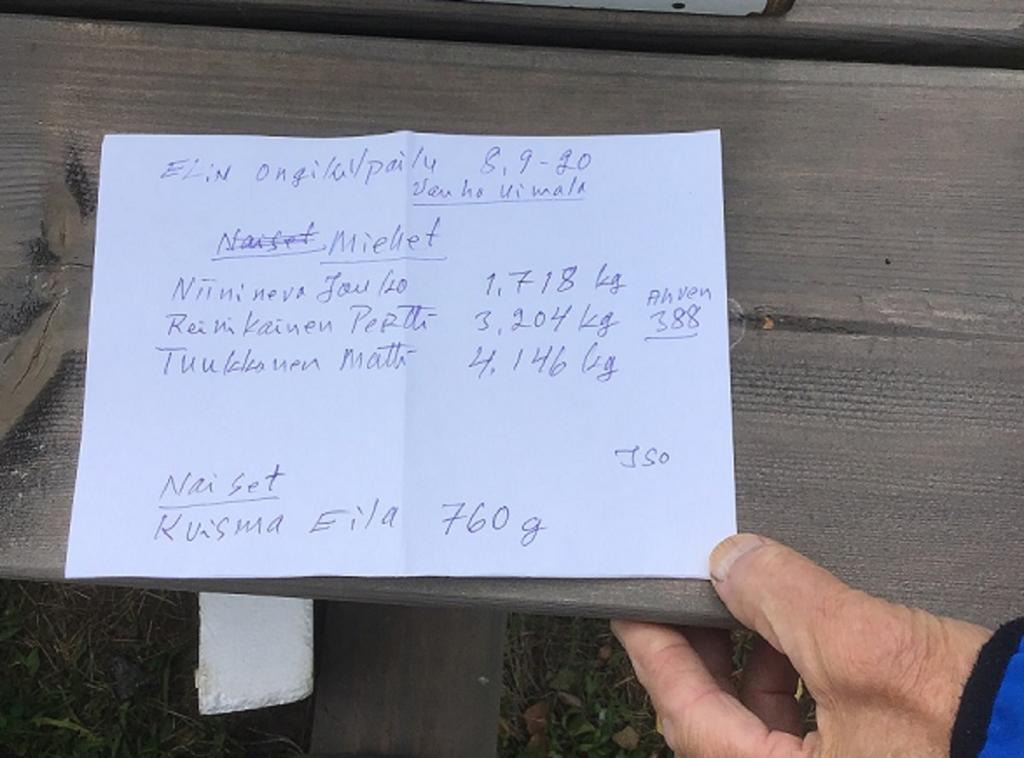 ELiN Ongikilpailu 8.9-20
Vanha Uimala
Naiset Miehet
Niinineva Jouko 1.718 kg
Ahven
Reinikainen Pertti 3,204 kg 388
Tuukkanen Matti 4.146 kg
ISO
Naiset
Kuisma Eila 760 g